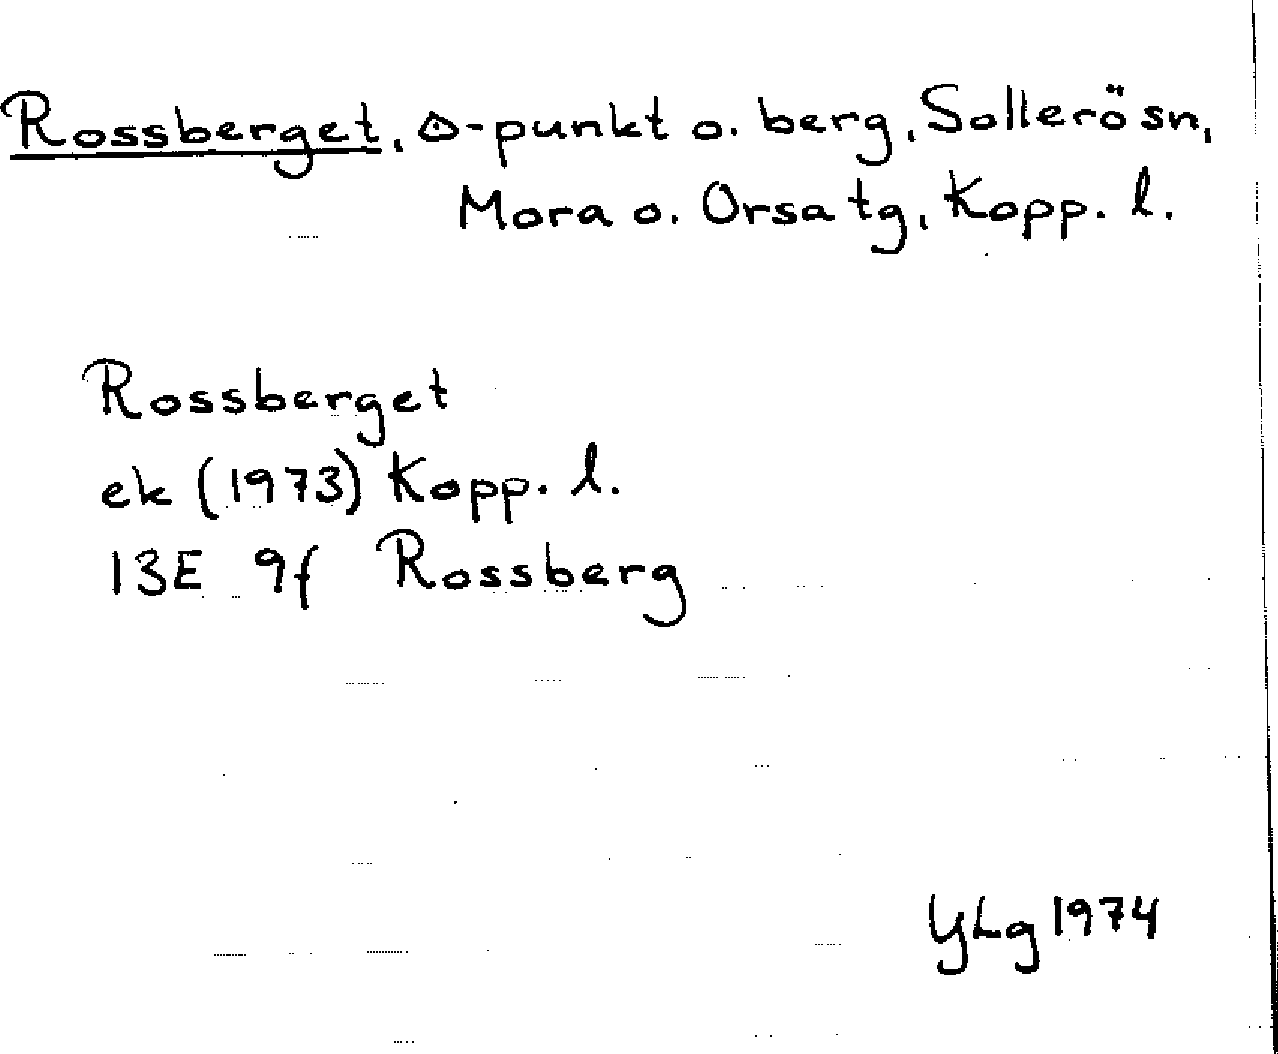 Rossberget, △-punkt o. berg, Sollerösn,
Mora o. Orsa tg, Kopp. l.
Rossberget
ek (1973) Kopp. l.
13E 9f Rossberg
YLg 1974